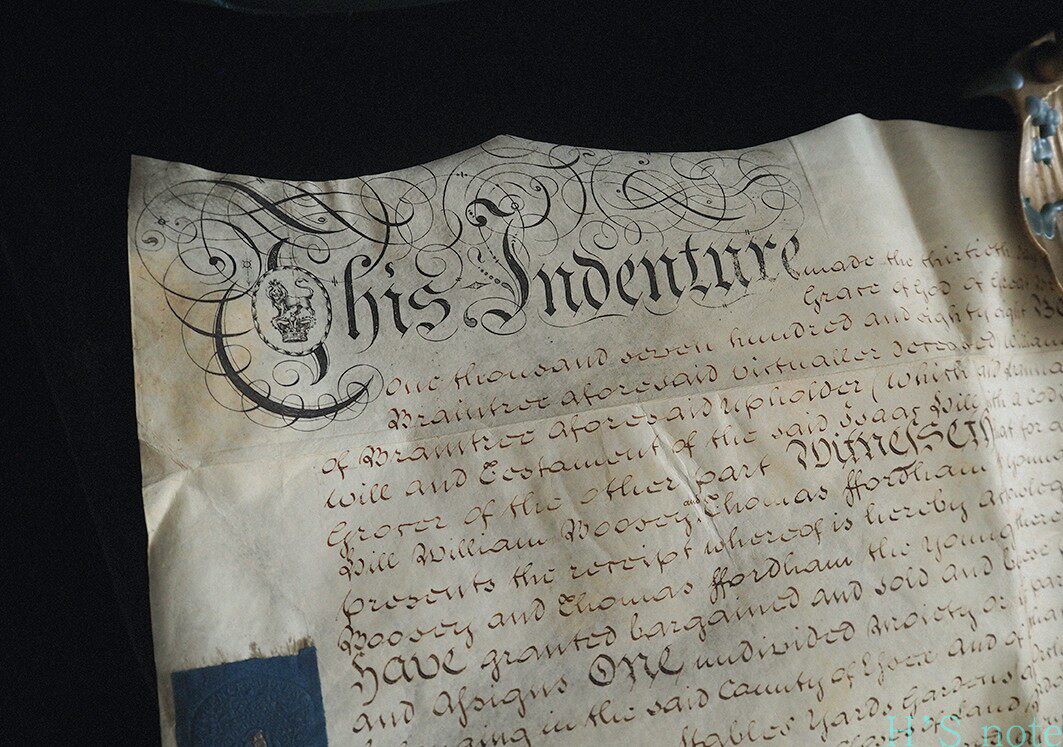 This Indenture made the thirtieth
Grace of God of Great
One thousand seven hundred and eighty eight
Braintree aforesaid Victualler deceased
of Braintree aforesaid Upholder (which
Will and Testament of the said Isaac Bill
Grocer of the other part Witnesseth that for a
Bill William Boosey and Thomas ffordham
presents the receipt whereof is hereby
Boosey and Thomas ffordham the Younger
Have granted bargained and sold and
and Assigns One undivided Moiety or
in the said County of Essex and
Stables Yards Gardens
H'S note